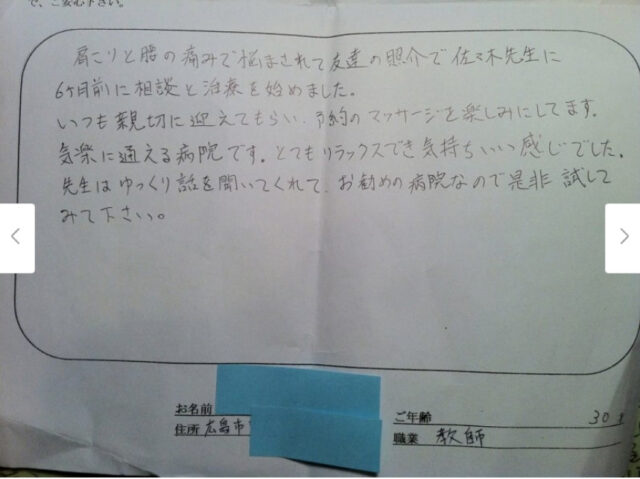 で、ご安心下さい。
肩こりと腰の痛みで悩まされて友達の照介で佐々木先生に
6ヶ月前に相談と治療を始めました。
いつも親切に迎えてもらい、予約のマッサージを楽しみにしてます。
気楽に通える病院です。とてもリラックスでき気持ちいい感じでした。
先生はゆっくり話を聞いてくれて、お勧めの病院なので是非試して
みて下さい。
お名前
ご年齢 30
住所 広島市
職業 教師